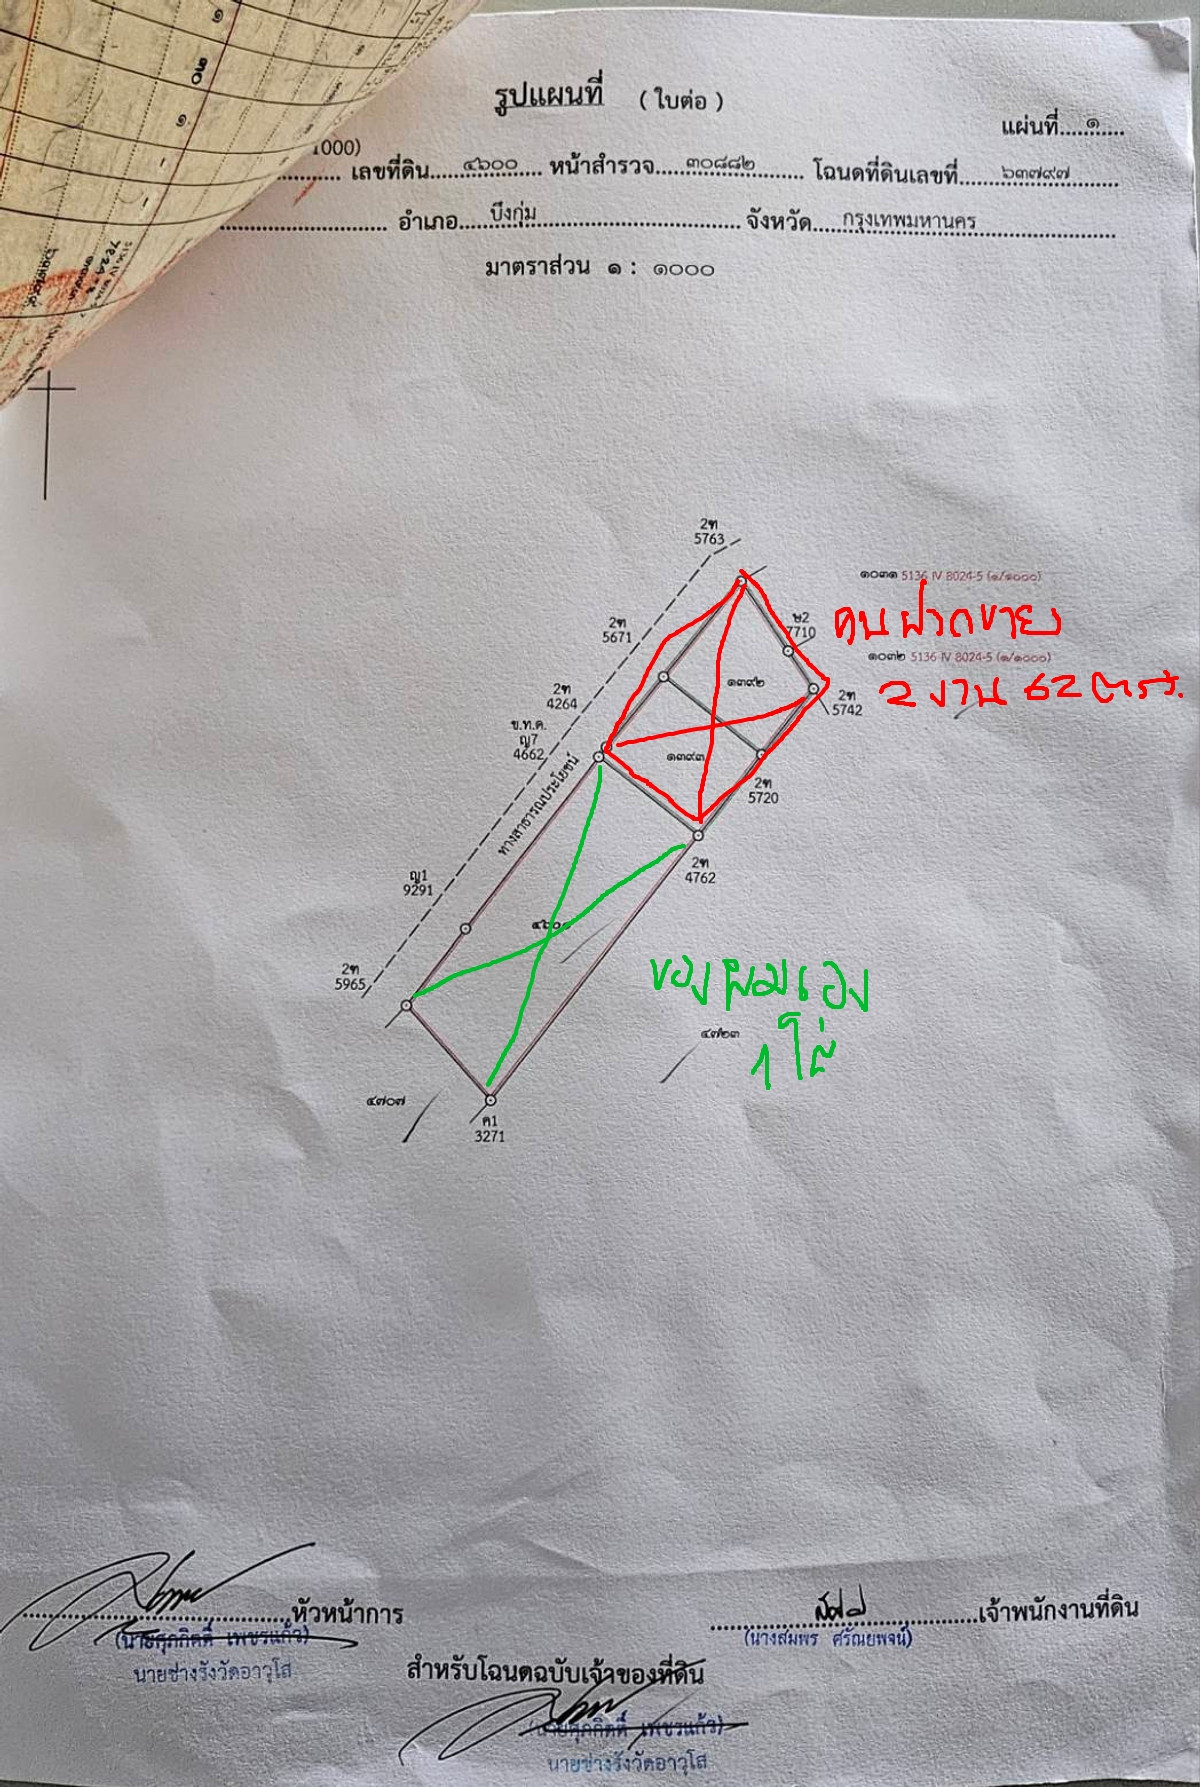 รูปแผนที่ (ใบต่อ)
แผ่นที่.....๑....
1000)
เลขที่ดิน....๔๖๐๐.... หน้าสำรวจ....๓๐๘๘๒........ โฉนดที่ดินเลขที่......๖๓๗๙๗.......
อำเภอ....บึงกุ่ม.............................จังหวัด....กรุงเทพมหานคร....................
มาตราส่วน ๑ : ๑๐๐๐
2ฑ
5763
๑๐๓๑ 5136 IV 8024-5 (๑/๑๐๐๐)
ษ2
7710
คนฝากขาย
2ฑ
5671
๑๐๓๒ 5136 IV 8024-5 (๑/๑๐๐๐)
๑๓๙๒
2 งาน 62 ตรว.
2ฑ
4264
2ฑ
5742
ข.ท.ค.
ญ7
4662
๑๓๙๓
2ฑ
5720
ทางสาธารณประโยชน์
2ฑ
4762
ญ1
9291
๔๖๐๐
2ฑ
5965
ของผมเอง
๔๗๒๓
1 ไร่
๔๗๐๗
ค1
3271
หัวหน้าการ
เจ้าพนักงานที่ดิน
(นายศุภกิตติ์ เพชรแก้ว)
(นางสมพร ศรัณยพจน์)
นายช่างรังวัดอาวุโส
สำหรับโฉนดฉบับเจ้าของที่ดิน
(นายศุภกิตติ์ เพชรแก้ว)
นายช่างรังวัดอาวุโส